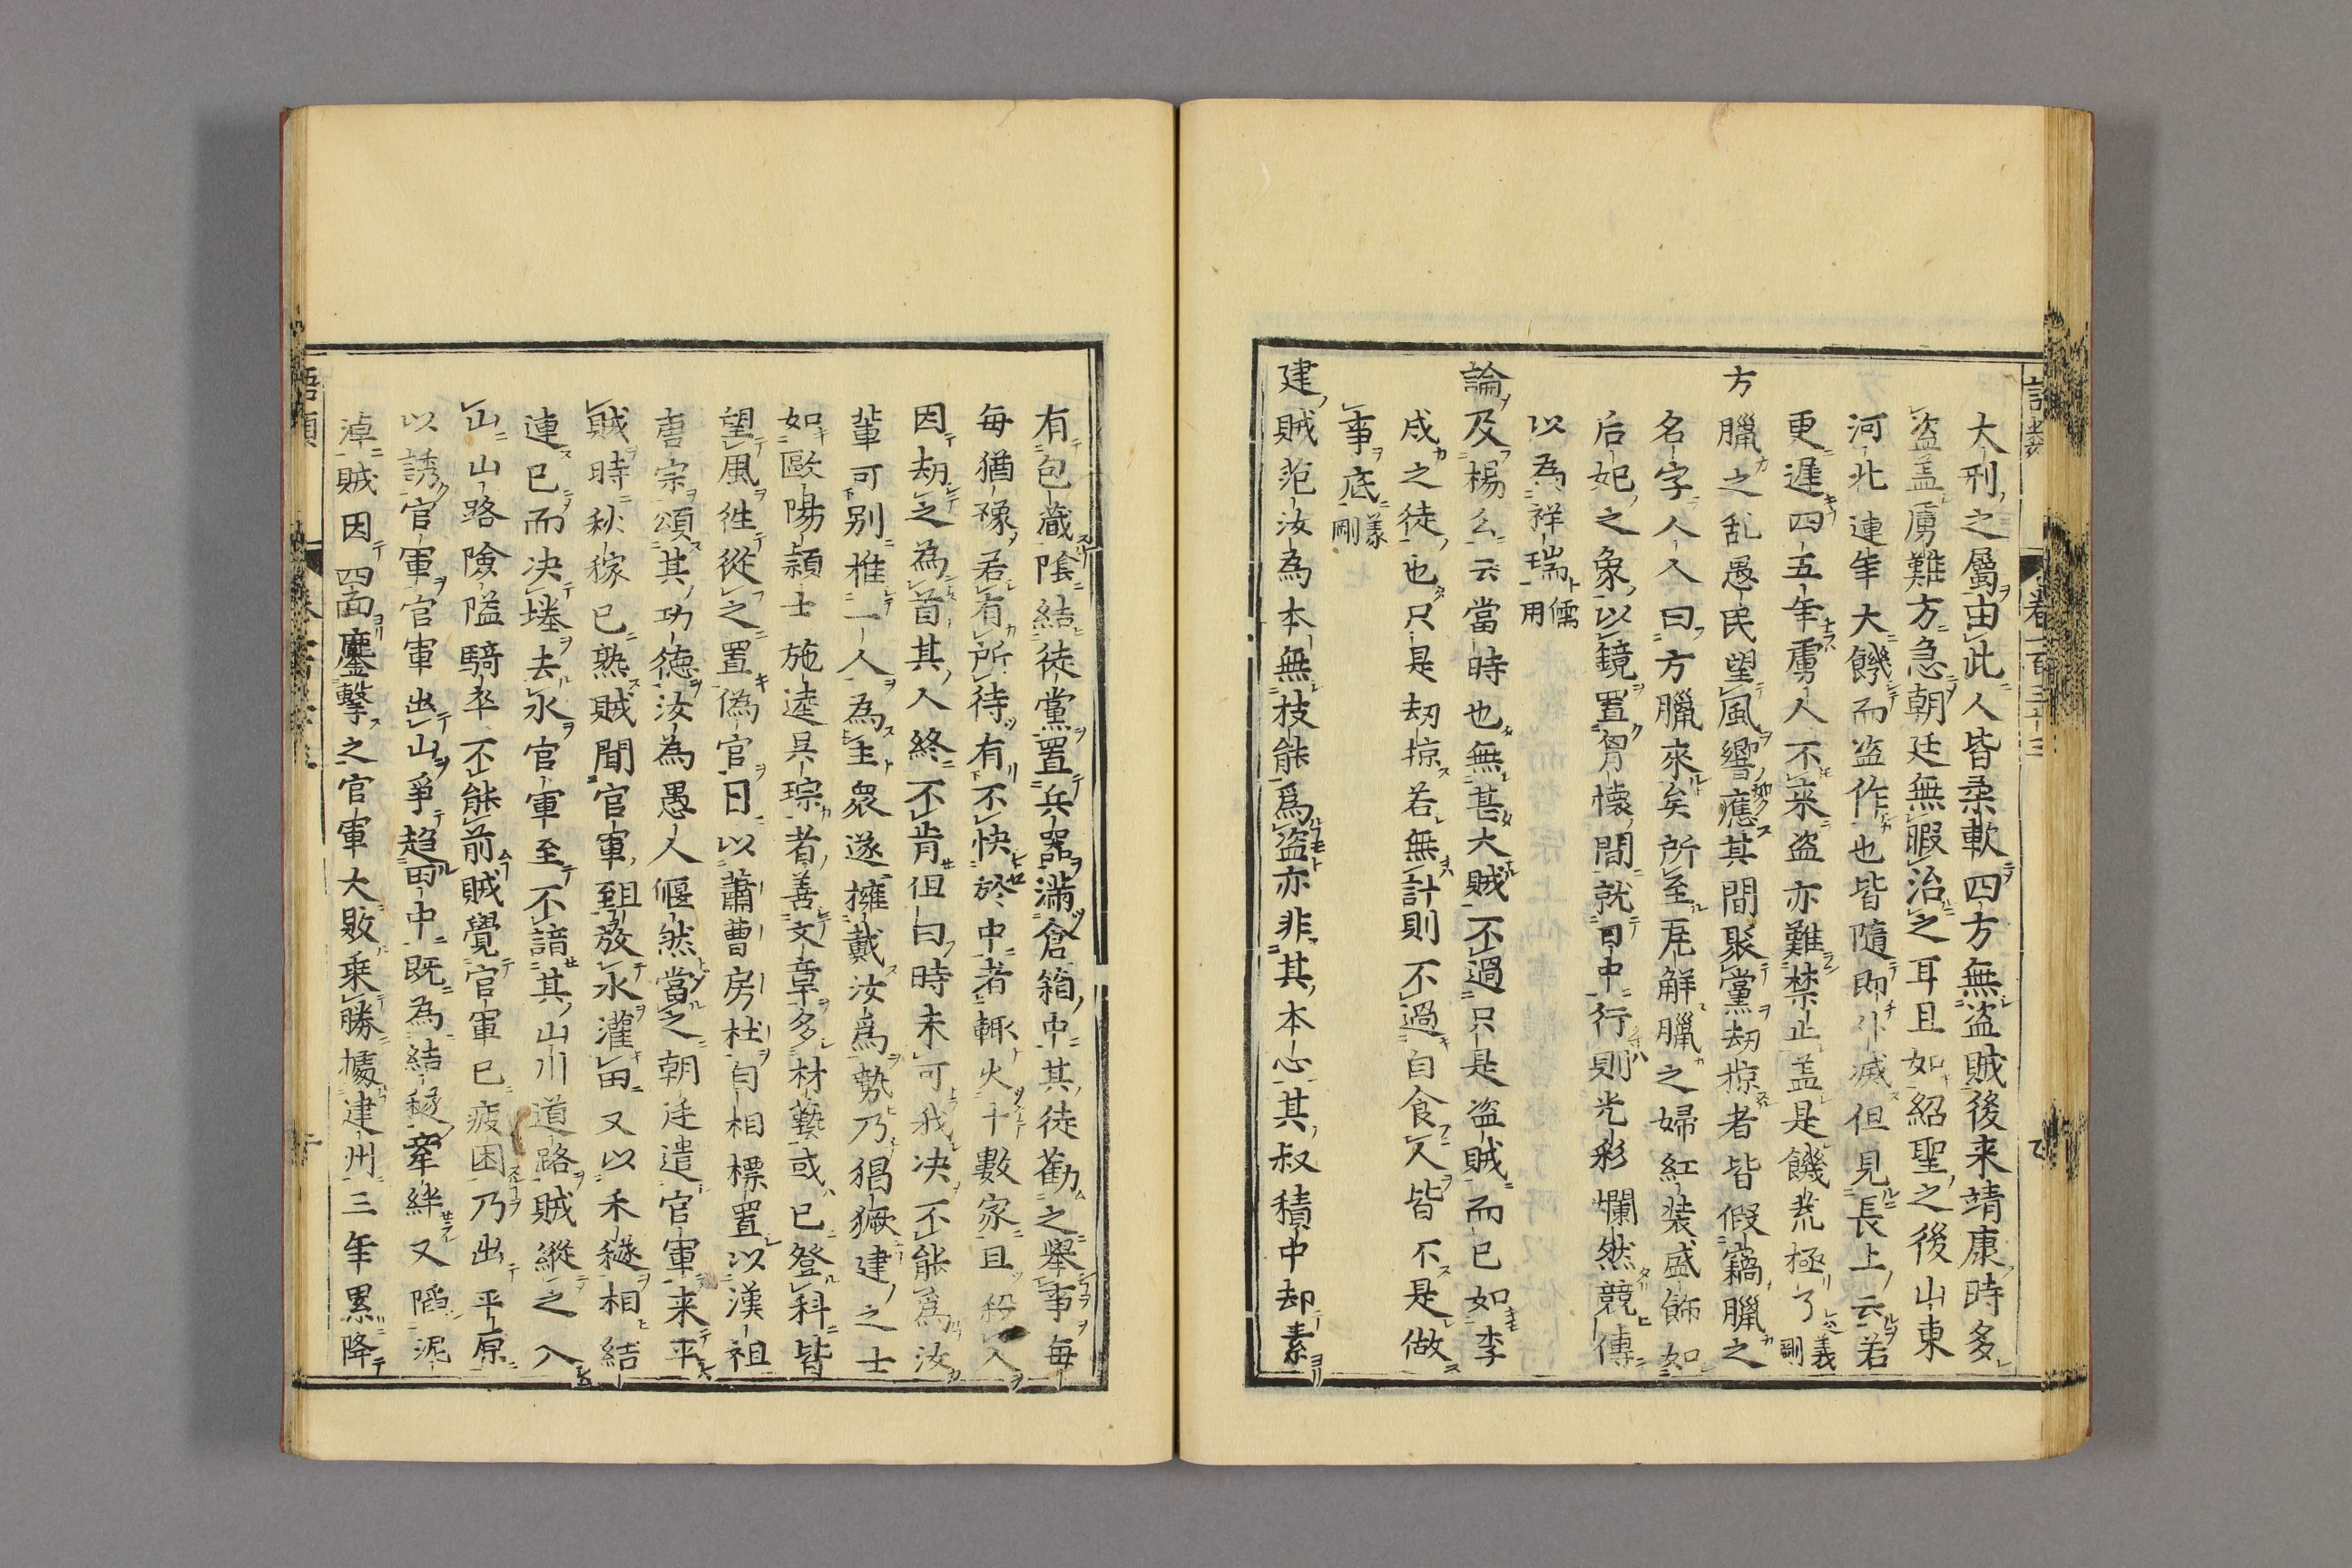 大刑之屬由此人皆柔軟四方無盜賊後来靖康時多
盜盖虜難方急朝廷無暇治之耳且如紹聖之後山東
河北連年大饑而盜作也皆隨即仆滅但見長上云若
更遲四五年虜人不来盜亦難禁止盖是饑荒極了義剛
方臘之乱愚民望風響應其間聚黨劫掠者皆假竊臘之
名字人人曰方臘來矣所至瓦解臘之婦紅装盛飾如
后妃之象以鏡置胷懷間就日中行則光彩爛然競傳
以為祥瑞儒用
論及楊么云當時也無甚大賊不過只是盜賊而已如李
成之徒也只是劫掠若無計則不過自食人皆不是做
事底義剛
建賊范汝為本無技能爲盜亦非其本心其叔積中却素
有包蔵陰結徒黨置兵器滿倉箱中其徒勸之舉事每
每猶豫若有所待有不快於中者輙火十數家且殺人
因劫之為首其人終不肯但曰時未可我决不能爲汝
輩可別推一人為主衆遂擁戴汝爲勢乃猖獗建之士
如歐陽潁士施逵呉琮者善文章多材藝或已登科皆
望風徃從之置偽官日以蕭曹房杜自相標置以漢祖
唐宗頌其功德汝為愚人偃然當之朝廷遣官軍来平
賊時秋稼已熟賊聞官軍且至放水灌田又以禾穟相結
連已而决塍去水官軍至不諳其山川道路賊縱之入
山山路險隘騎卒不能前賊覺官軍已疲困乃出平原
以誘官軍官軍出山爭趨田中既為結穟牽絆又䧟泥
淖賊因四面鏖擊之官軍大敗乗勝據建州三年累降
語類
卷一百三十三